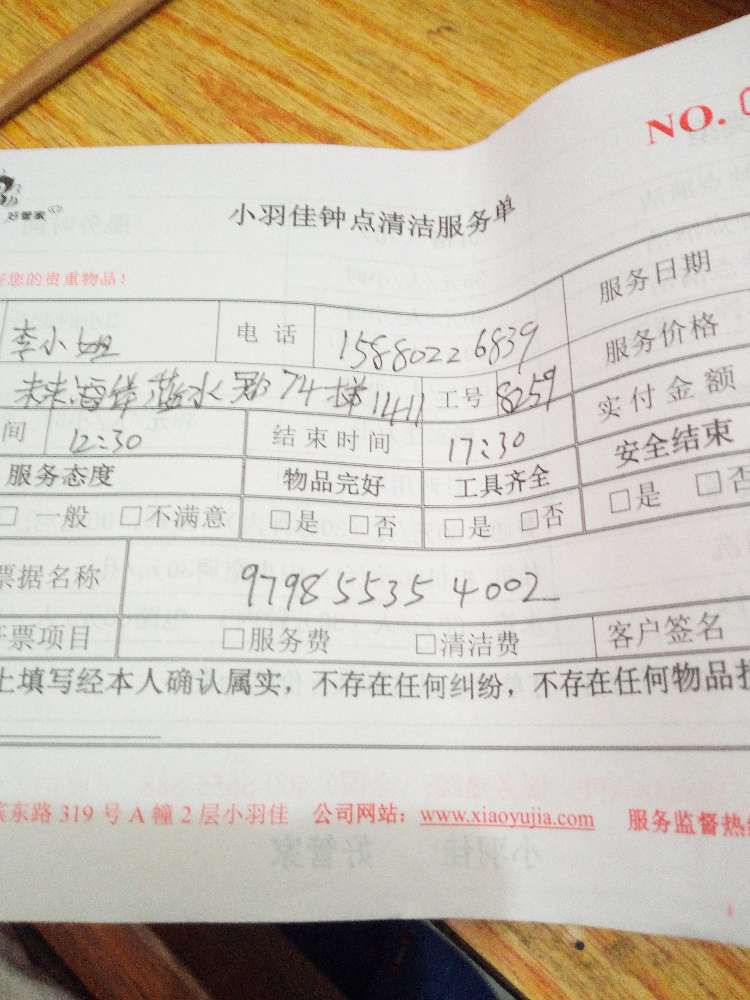 NO.
好管家
小羽佳钟点清洁服务单
您的贵重物品！
服务日期
李小姐 电话 15880226839 服务价格
未来海岸蓝水郡74梯1411 工号 8259 实付金额
间 12:30 结束时间 17:30 安全结束
服务态度 物品完好 工具齐全 □是 □否
□一般 □不满意 □是 □否 □是 □否
票据名称 979855354002
开票项目 □服务费 □清洁费 客户签名
上填写经本人确认属实，不存在任何纠纷，不存在任何物品
东路319号A幢2层小羽佳 公司网站：www.xiaoyujia.com 服务监督热